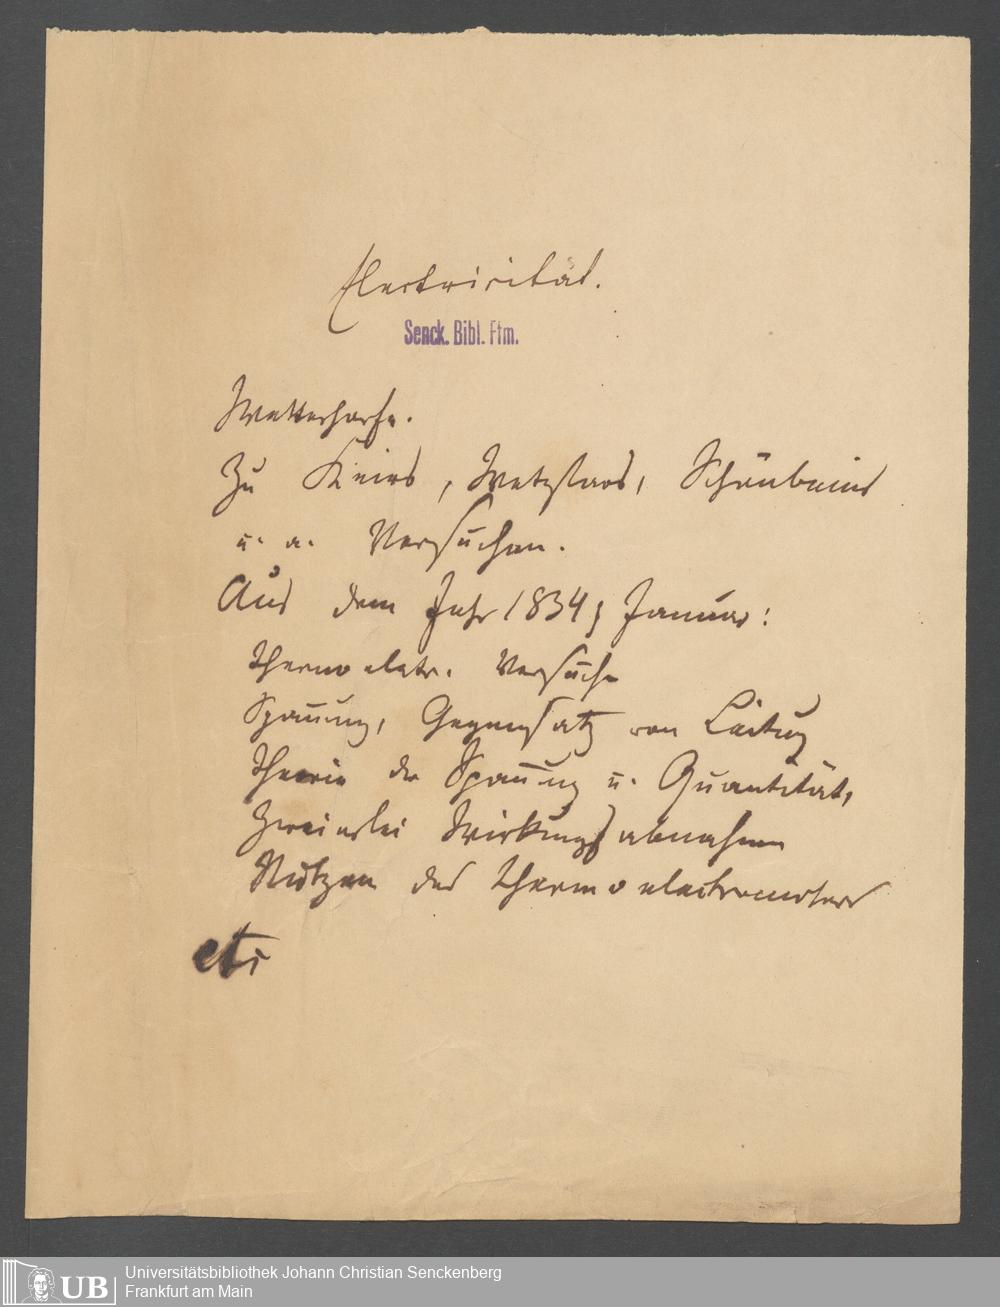 Electricität.
Senck. Bibl. Ffm.
Wetterharfe.
Zu Knies, Wetzlars, Schönbeins
u. a. Versuchen.
Aus dem Jahr 1834, Januar:
thermoelektr. Versuche
Spañung, Gegensatz von Leitung
Theorie der Spañung u. Quantität,
Zweierlei Wirkungsabnahmen
Nutzen des Thermoelectrometers
etc
UB
Universitätsbibliothek Johann Christian Senckenberg
Frankfurt am Main